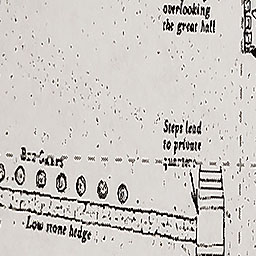 overlooking
the great hall
Steps lead
to private
quarters
Low stone hedge